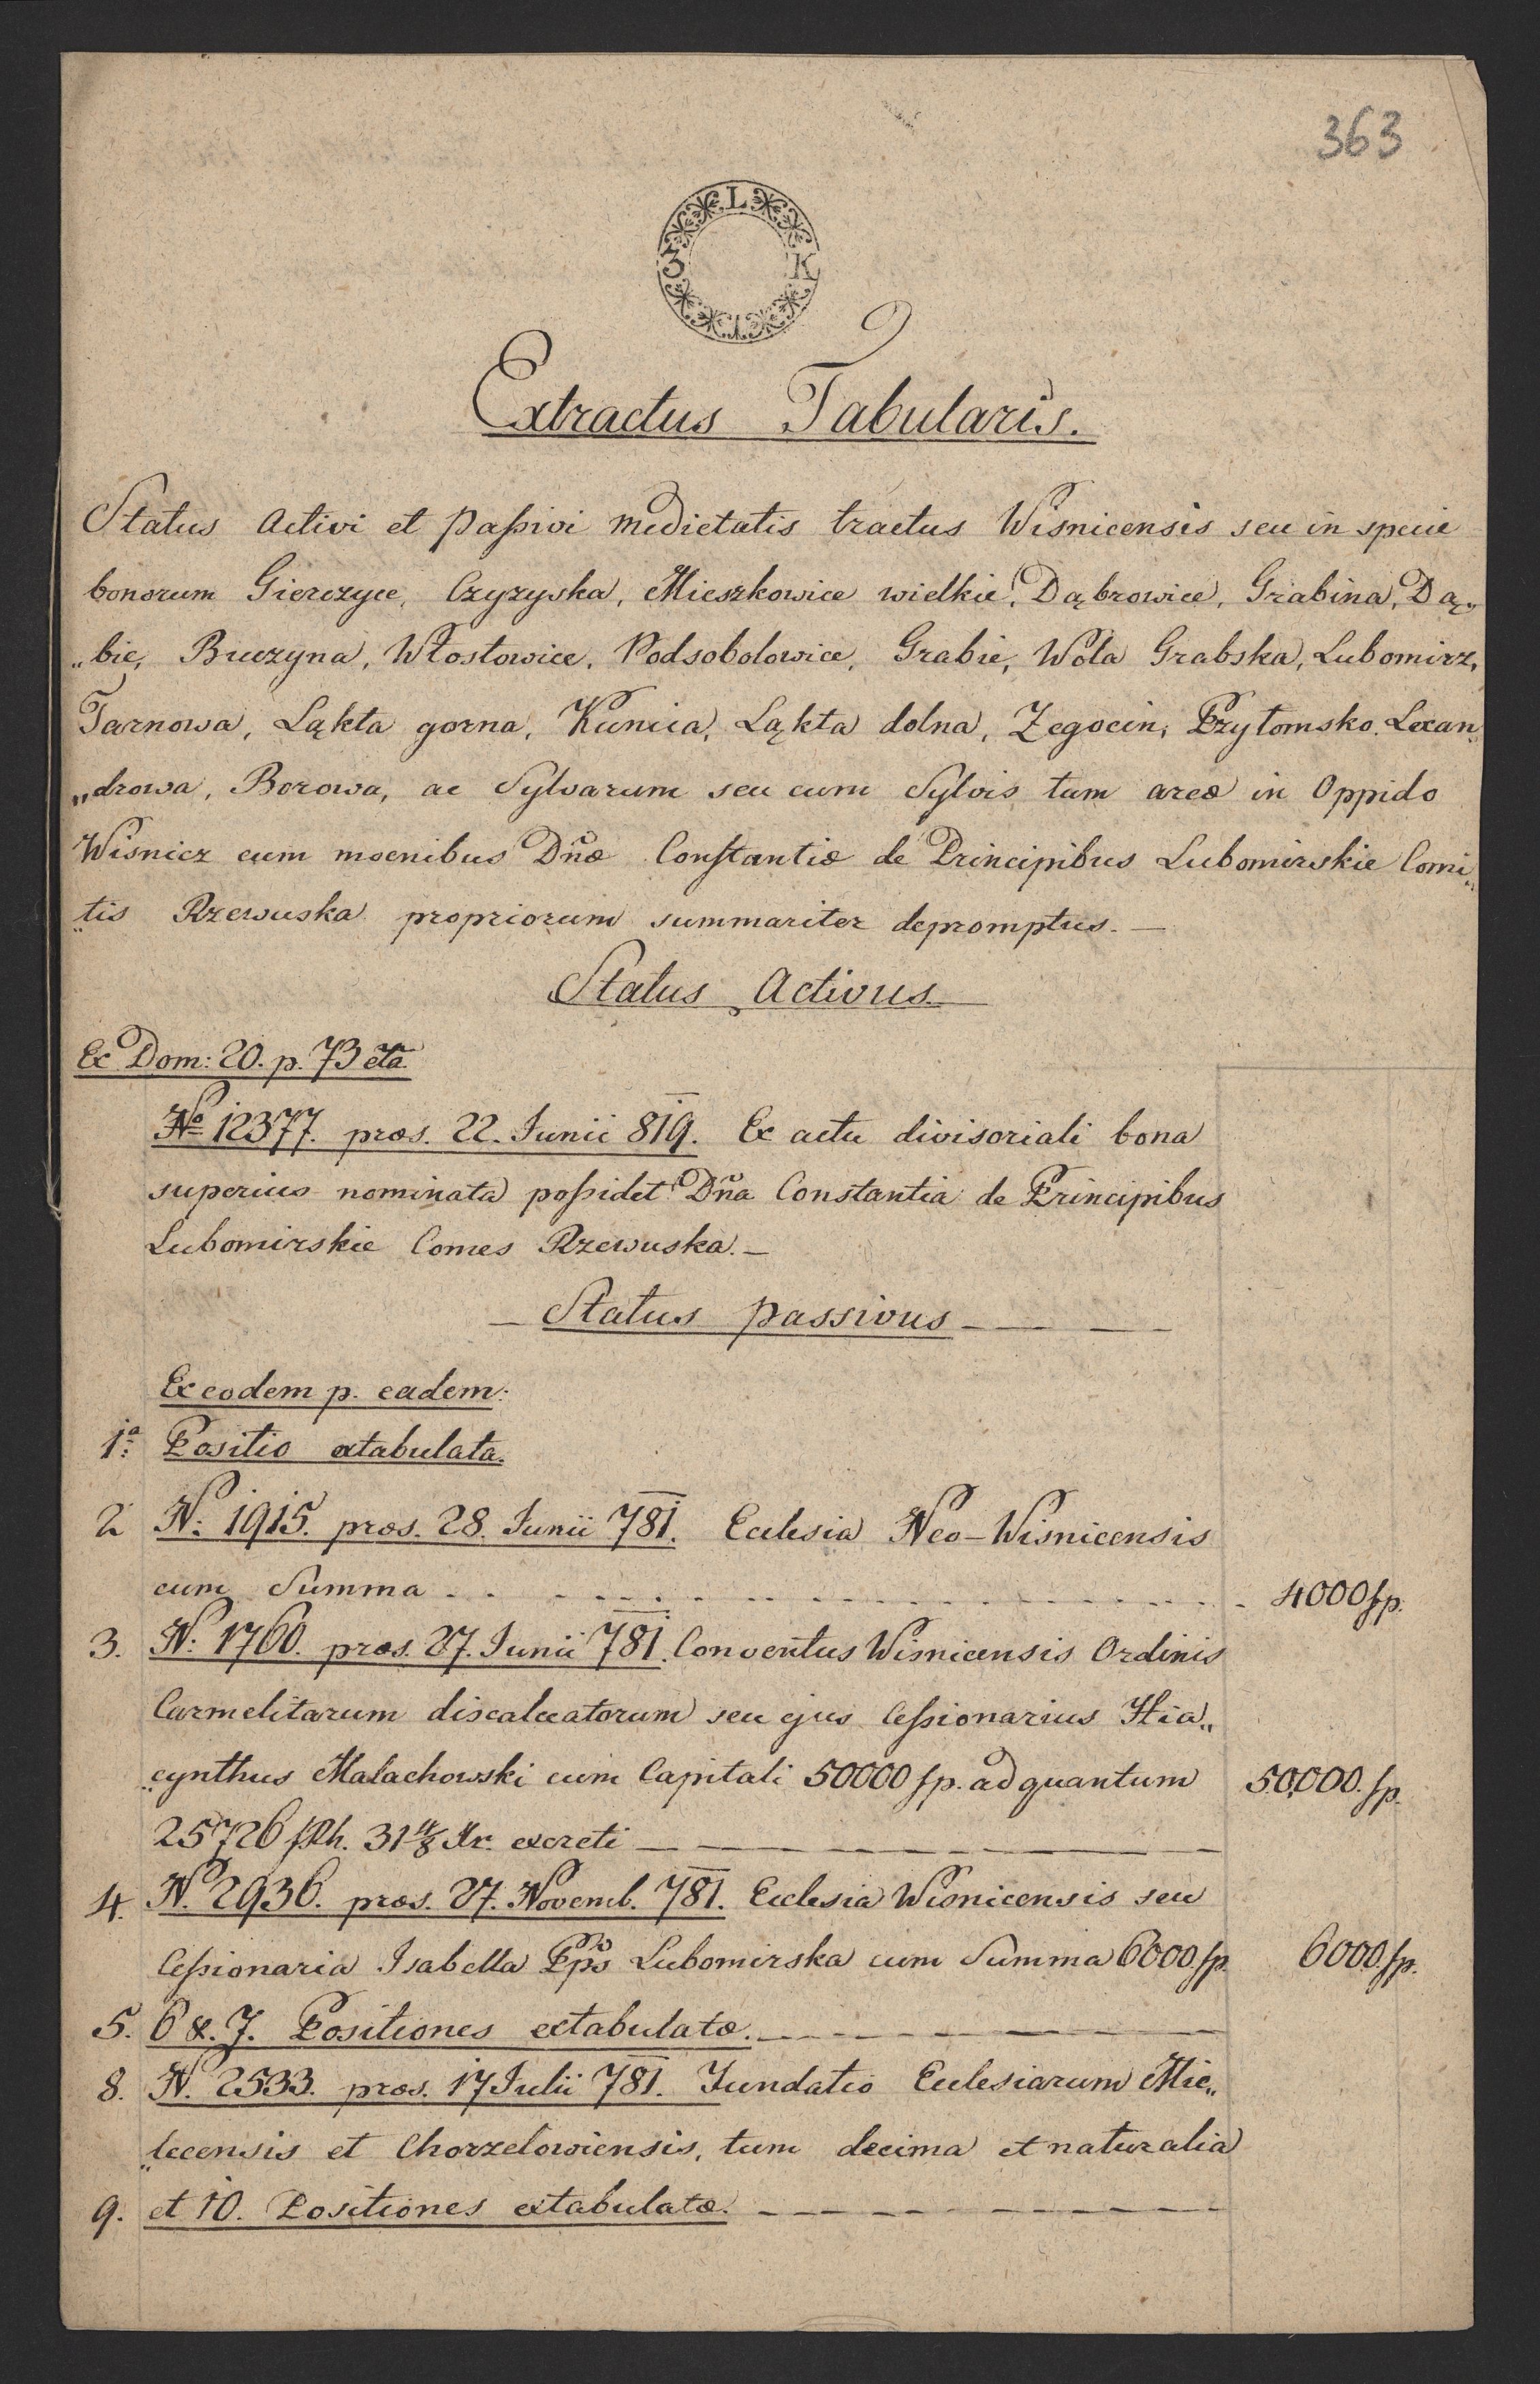 363
L
3 K
Extractus Tabularis.
Status Activi et Passivi Medietatis tractus Wisnicensis seu in specie
bonorum Gierczyce, Czyzyska, Mieszkowice wielkie, Dąbrowice, Grabina, Dą„
„bie, Buczyna, Włostowice, Podsobolowice, Grabie, Wola Grabska, Lubomirz,
Tarnowa, Ląkta gorna, Kunica, Ląkta dolna, Zegocin, Przytomsko. Lexan„
„drowa, Borowa, ac Sylvarum seu cum Sylvis tum areæ in Oppido
Wisnicz cum moenibus Dnæ Constantiæ de Principibus Lubomirskie Comi„
„tis Rzewuska propriorum summariter depromptus. —
Status Activus.
Ex Dom: 20. p. 73 eta
No 12377. præs. 22. Junii 819. Ex actu divisoriali bona
superius nominata possidet Dña Constantia de Principibus
Lubomirskie Comes Rzewuska. —
— Status passivus — — —
Ex eodem p. eadem:
1a: Positio extabulata.
2 N: 1915. præs. 28. Junii 781. Ecclesia Neo-Wisnicensis
cum Summa . . . . . . . . . . 4000 fp.
3. N: 1760. præs. 27. Junii 781. Conventus Wisnicensis Ordinis
Carmelitarum discalceatorum seu ejus Cessionarius Hia„
„cynthus Małachowski cum Capitali 50000 fp. ad quantum 50,000. fp.
25726 fRh. 31 4/8 Xr. excreti — — — —
4. N. 2936. præs. 27. Novemb. 781. Ecclesia Wisnicensis seu
Cessionaria Isabella Ppss Lubomirska cum Summa 6000. fp. 6000. fp.
5. 6 &. 7. Positiones extabulatæ. — — — —
8. N. 2533. præs. 17 Julii 781. Fundatio Ecclesiarum Mie„
„lecensis et Chorzelowiensis, tum decima et naturalia
9. et 10. Positiones extabulatæ. — — — —